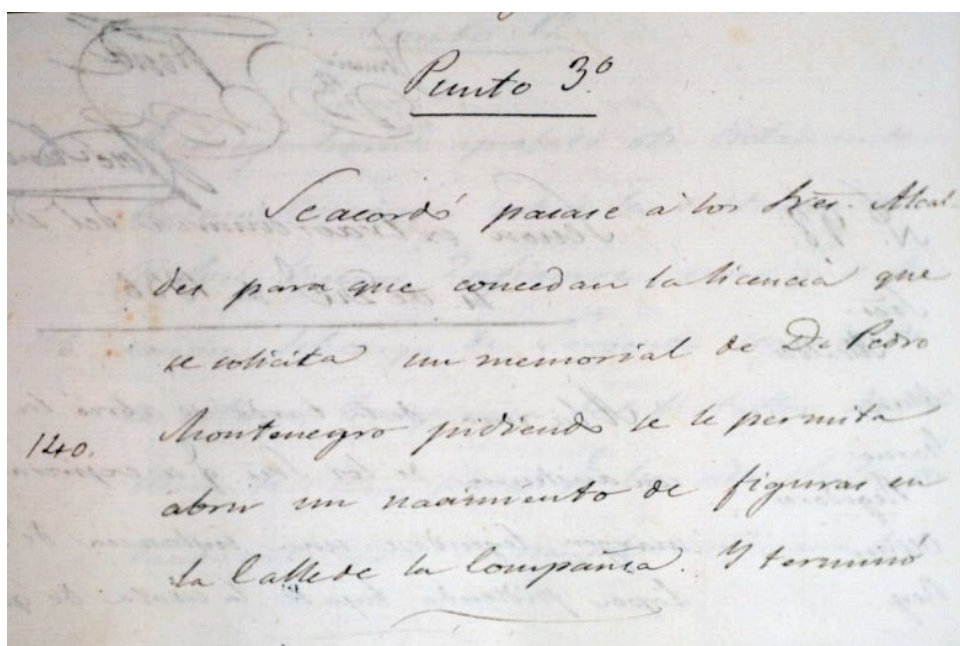 Punto 3º
Se acordó pasase à los Sres. Alcal-
des para que concedan la licencia que
se solicita un memorial de Dn Pedro
140. Montenegro pidiendo se le permita
abrir un nacimiento de figuras en
la Calle de la Compañía. Y termino